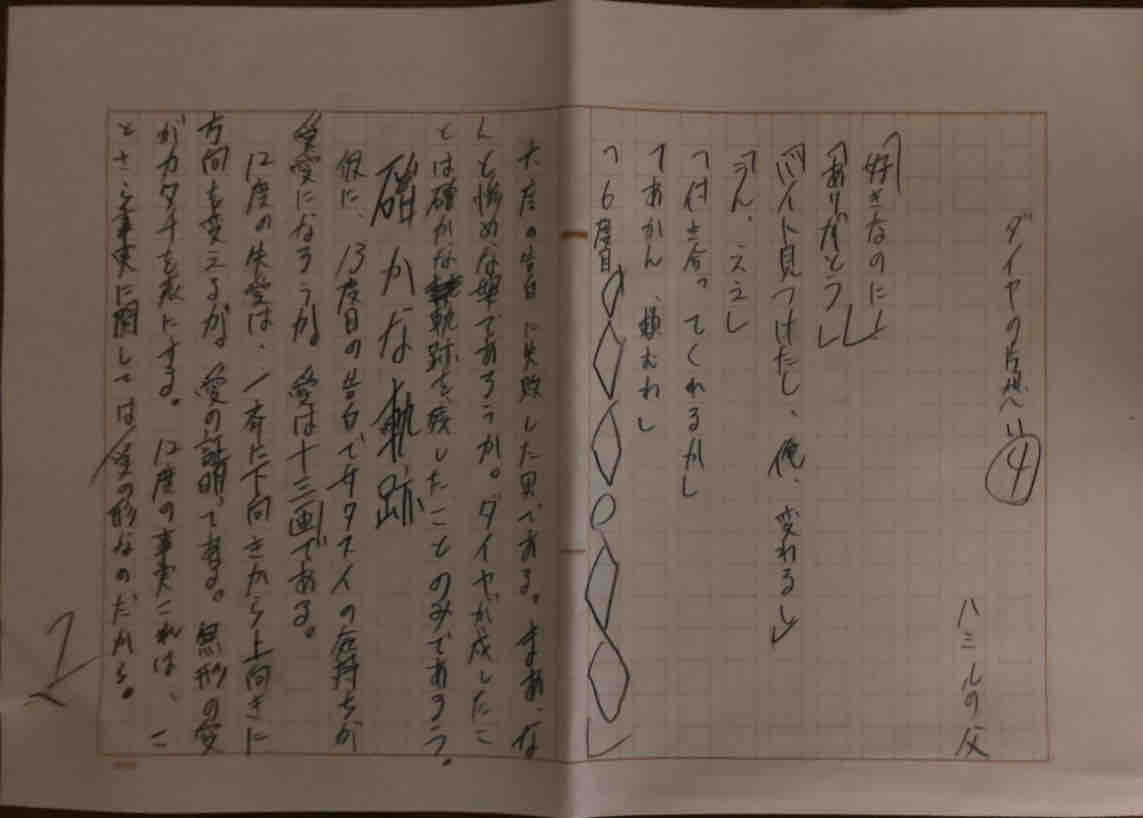 ダイヤの片想い④
ハミルの父
「好きなのに」
「ありがとう」
「バイト見つけたし、俺、変われるし」
「うん、ええ」
「付き合ってくれるか」
「あかん、頼むわ」
「6度目◇◇◇○◇◇」
大度の告白に失敗した男である。まあ、な
んと惨めな男であろうか。ダイヤが残したこ
とは確かな軌跡を残したことのみであろう。
確かな軌跡
仮に、13度目の告白でサタスイの気持ちが
受愛になろうが、愛は十三画である。
12度の失愛は、一斉に下向きから上向きに
方向を変えるが、愛の証明である。無形の愛
がカタチを表にする。12度の事実これは、こ
とさら事実に関しては愛の形なのだから。
1